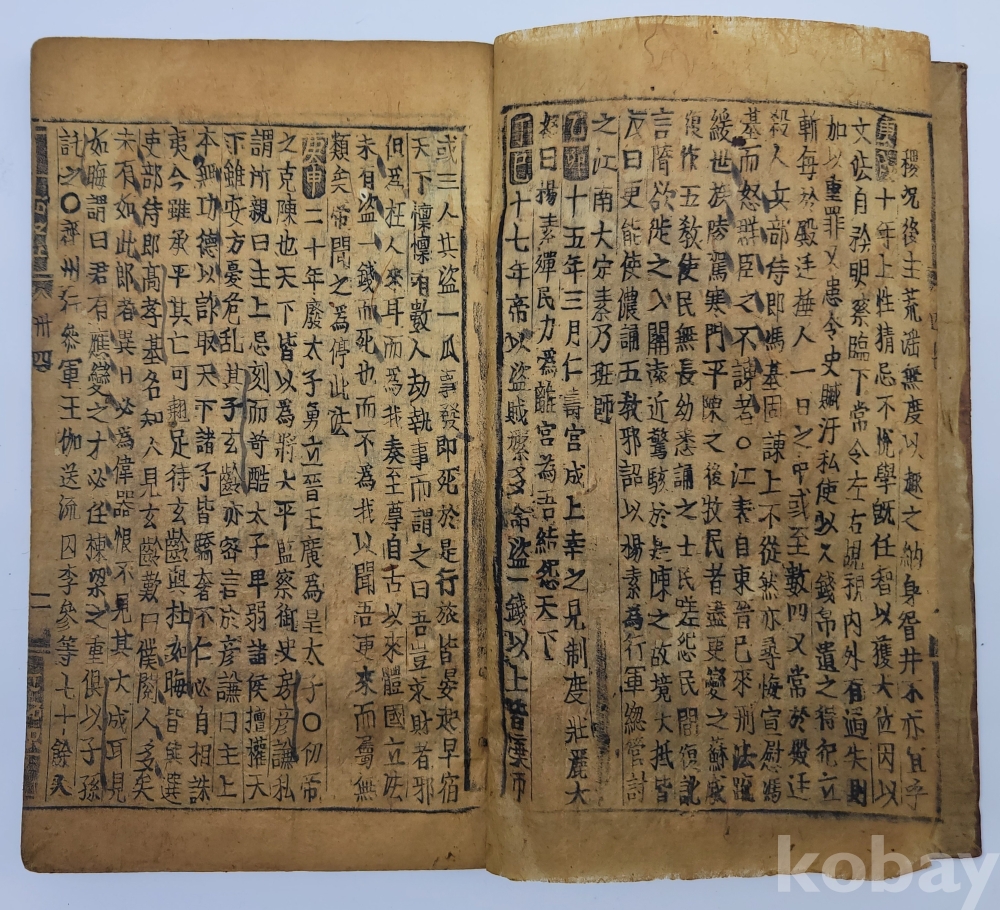 稷況後主荒滛無度以趣之納身眢井不亦宜乎
庚戌十年上性猜忌不悅學旣任智以獲大位因以
文法自矜明察臨下常令左右覘視內外有過失則
加以重罪又患令史贓汙私使以錢帛遺之得犯立
斬每於殿廷捶人一日之中或至數四又常於殿廷
殺人兵部侍郎馮基固諫上不從然亦尋悔宣慰馮
基而怒群臣之不諫者〇江表自東晉已來刑法踈
緩世族陵駕寒門平陳之後牧民者盡更變之蘇威
復作五敎使民無長幼悉誦之士民嗟怨民間復訛
言隋欲徙之入關遠近驚駭於是陳之故境大抵皆
反曰更能使儂誦五敎邪詔以楊素為行軍總管討
之江南大定素乃班師
乙卯十五年三月仁壽宮成上幸之見制度壯麗大
怒曰楊素殫民力為離宮為吾結怨天下
丁巳十七年帝以盜賊繁多命盜一錢以上皆棄市
或三人共盜一瓜事發即死於是行旅皆晏起早宿
天下懍懍有數人劫執事而謂之曰吾豈求財者邪
但為枉人來耳而為我奏至尊自古以來體國立法
未有盜一錢而死也而不為我以聞吾更來而屬無
類矣帝聞之為停此法
庚申二十年廢太子勇立晉王廣為皇太子〇初帝
之克陳也天下皆以為將太平監察御史房彦謙私
謂所親曰主上忌刻而苛酷太子卑弱諸侯擅權天
下雖安方憂危乱其子玄齡亦密言於彦謙曰主上
本無功德以詐取天下諸子皆驕奢不仁必自相誅
夷今雖承平其亡可翹足待玄齡與杜如晦皆預選
吏部侍郎髙孝基名知人見玄齡歎曰僕閱人多矣
未有如此郎者異日必為偉器恨不見其大成耳見
如晦謂曰君有應變之才必任棟梁之重俱以子孫
託之〇齊州行叅軍王伽送流囚李參等七十餘人